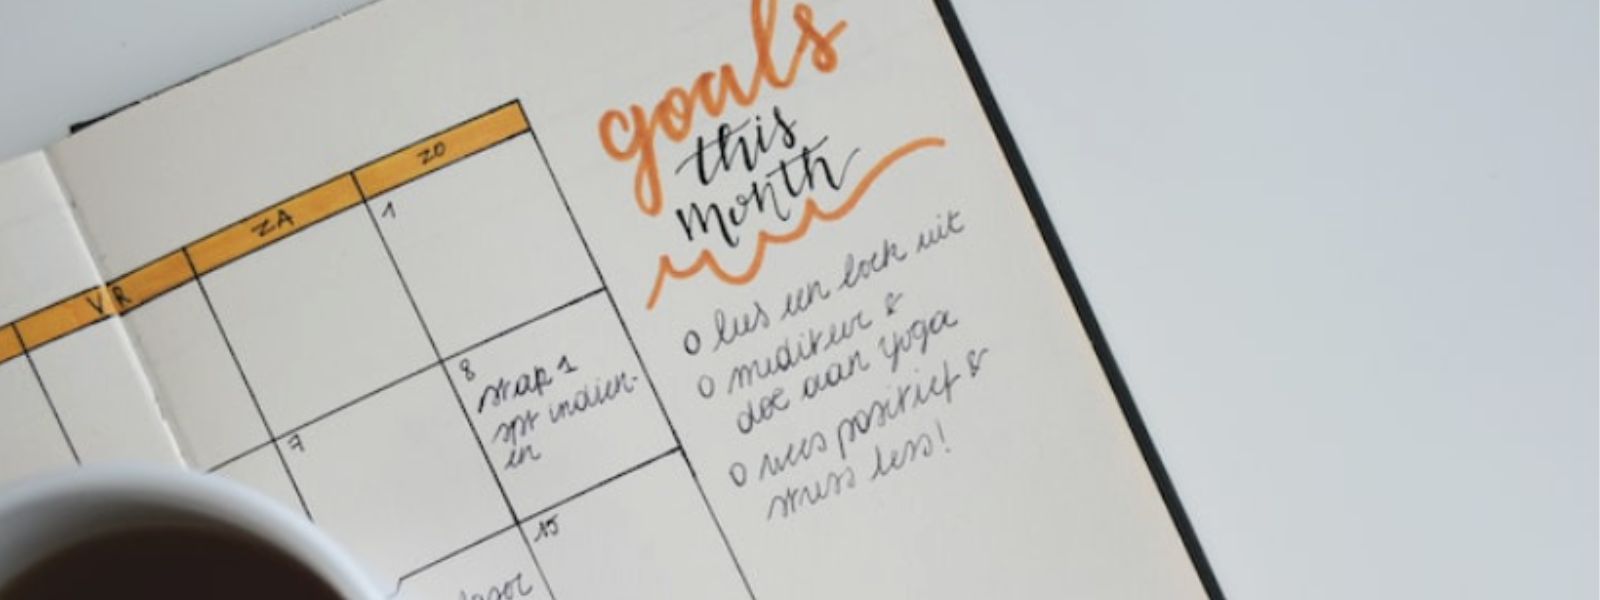 goals
this
month
VR ZA ZO
1
7
8
stap 1
spt indien-
en
15
o lees een boek uit
o mediteer &
doe aan yoga
o wees positief &
stress less!